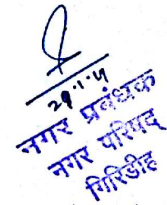 29.1.19
नगर प्रबंधक
नगर परिषद्
गिरिडीह